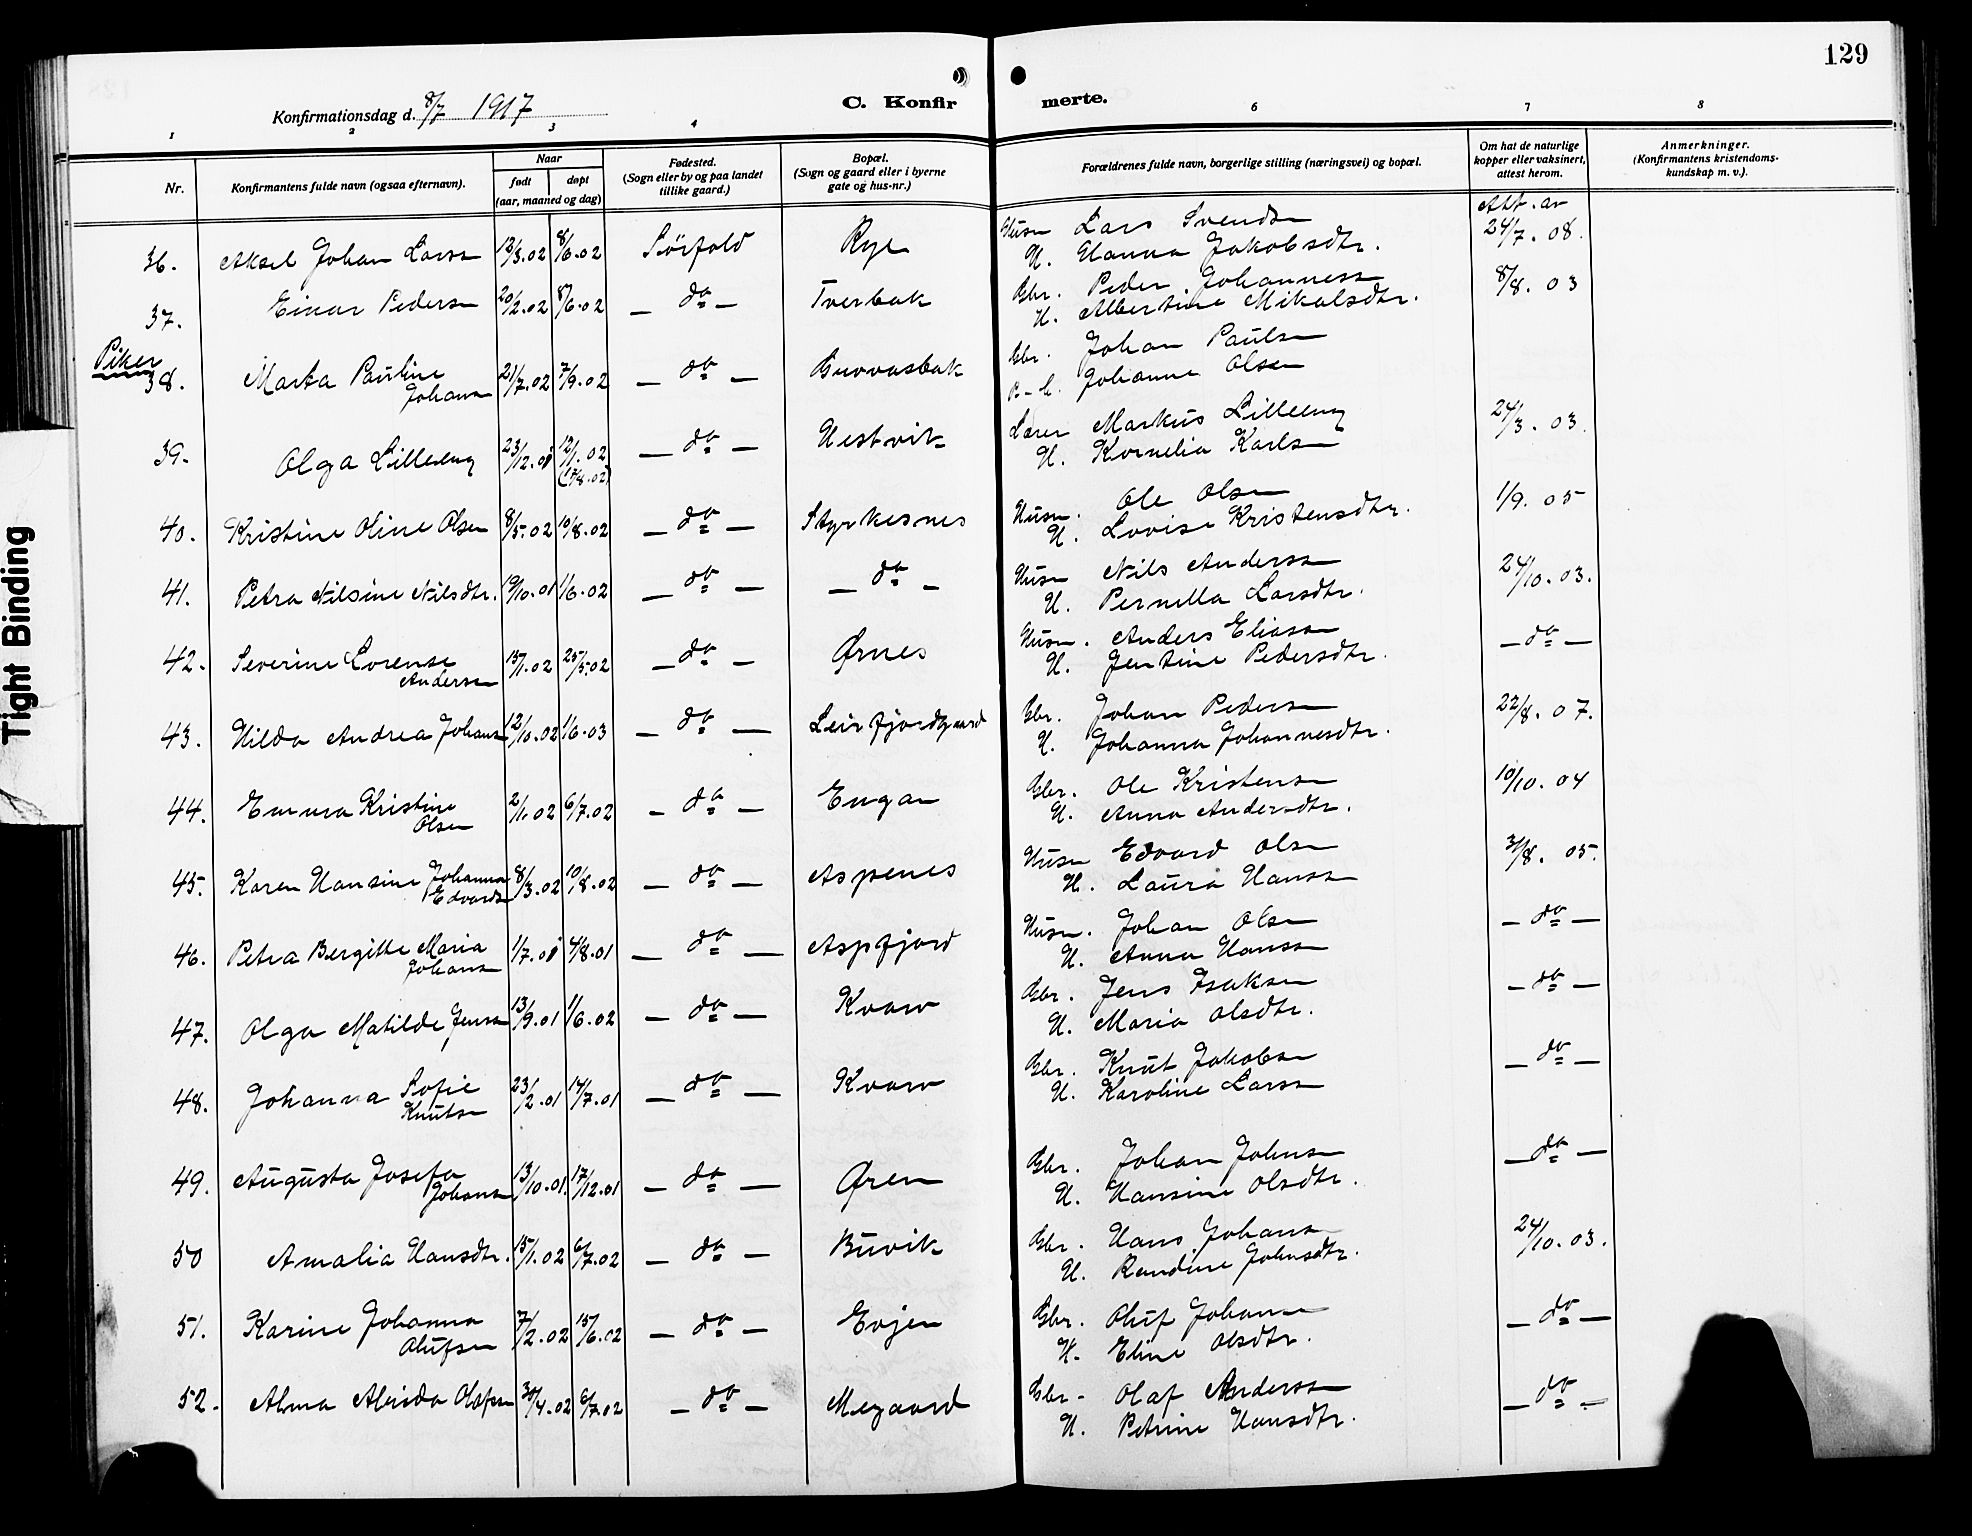 129
Konfirmationsdag d. 8/7 1917 C. Konfir merte.
1 2 3 4 6 7 8
Nr. Konfirmantens fulde navn (ogsaa efternavn). Naar født døpt (aar, maaned og dag) Fødested. (Sogn eller by og paa landet tillike gaard.) Bopæl. (Sogn og gaard eller i byerne gate og hus-nr.) Forældrenes fulde navn, borgerlige stilling (næringsvei) og bopæl. Om hat de naturlige kopper eller vaksinert, attest herom. Anmerkninger. (Konfirmantens kristendoms-kundskap m. v.).
36. Aksel Johan Larsn 13/3.02 8/6.02 Sörfold Rye Husm Lars Svendsn Att. av 24/7.08.
H. Hanna Jakobsdtr.
37. Einar Pedersn 20/2.02 8/6.02 — do — Tverbak Gbr. Peder Johannessn 8/8.03
H. Albertine Mikalsdtr.
Piker
38. Marta Pauline 21/7.02 7/9.02 — do — Gbr. Johan Paulsn
Johansn Johanne Olsen
39. Olga Lilleeng 23/12.01 12/1.02 — do — Hestvik Lærer Markus Lilleeng 24/3.03.
(17/8.02) H. Kornelia Karlsn
40. Kristine Oline Olsen 8/5.02 10/8.02 — do — Styrkesnes Husm. Ole Olsn 1/9.05
H. Lovise Kristensdtr.
41. Petra Nilsine Nilsdtr. 19/10.01 1/6.02 — do — — do — Husm Nils Anderssn 24/10.03.
H. Pernella Larsdtr.
42. Severine Lorense 15/1.02 25/5.02 — do — Ørnes Husm. Anders Eliasn — do —
Andersn H. Jentine Pedersdtr.
43. Hilda Andrea Johansn 12/10.02 1/6.03 — do — Leirfjordgaard Gbr. Johan Pedersn 22/8.07.
H. Johanna Johannesdtr.
44. Emma Kristine 2/1.02 6/7.02 — do — Engan Gbr. Ole Kristensn 10/10.04
Olsen H. Anna Andersdtr.
45. Karen Hansine Johanna 8/3.02 10/8.02 — do — Aspenes Husm Edvard Olsn 31/8.05.
Edvardsn H. Laura Hanssn
46. Petra Bergitte Maria 1/7.01 4/8.01 — do — Aspfjord Husm. Johan Olsn — do —
Johansn H. Anna Hanssn
47. Olga Matilde Jensn 13/9.01 1/6.02 — do — Kvarv Gbr. Jens Isaksn — do —
H. Maria Olsdtr.
48. Johanna Sofie 23/2.01 14/7.01 — do — Kvarv Gbr. Knut Jakobsn — do —
Knutsn H. Karoline Larsn
49. Augusta Josefa 13/10.01. 17/12.01 — do — Øren Gbr. Johan Johnsn — do —
Johansn H. Hansine Olsdtr.
50 Amalia Hansdtr. 15/1.02 6/7.02 — do — Buvik Gbr. Hans Johansn 24/10.03.
H. Randine Johnsdtr.
51. Karine Johanna 7/2.02 15/6.02 — do — Evjen Gbr. Oluf Johansn — do —
Olufsn H. Eline Olsdtr.
52. Alma Alvida Olafsn 30/4.02 6/7.02 — do — Megaard Gbr. Olaf Anderssn — do —
H. Petrine Hansdtr.
Tight Binding